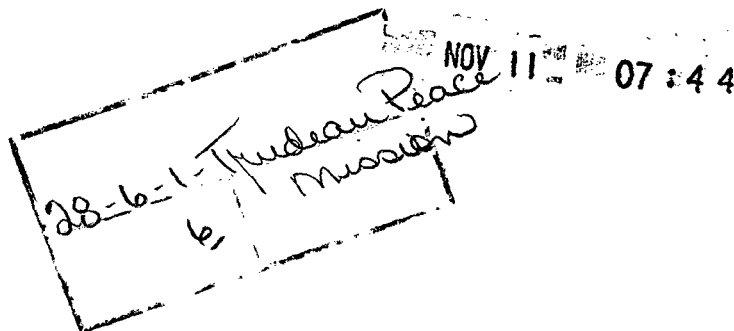 NOV 11 07:44
28-6-1-Trudeau Peace
Mission
6,